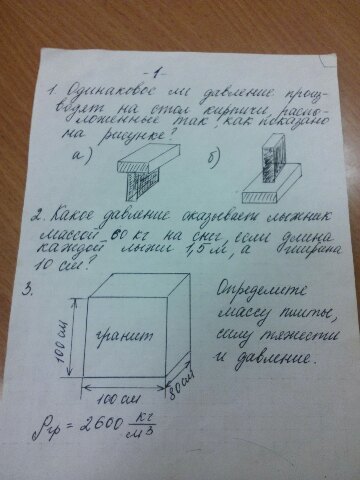 -1-
1. Одинаковое ли давление произ-
водят на стол кирпичи, распо-
ложенные так, как показано
на рисунке?
а) б)
2. Какое давление оказывает лыжник
массой 60 кг на снег, если длина
каждой лыжи 1,5 м, а ширина
10 см?
3.
Определите
массу плиты,
силу тяжести
и давление.
гранит
100 см
100 см
80 см
ρгр = 2600 кг/м3